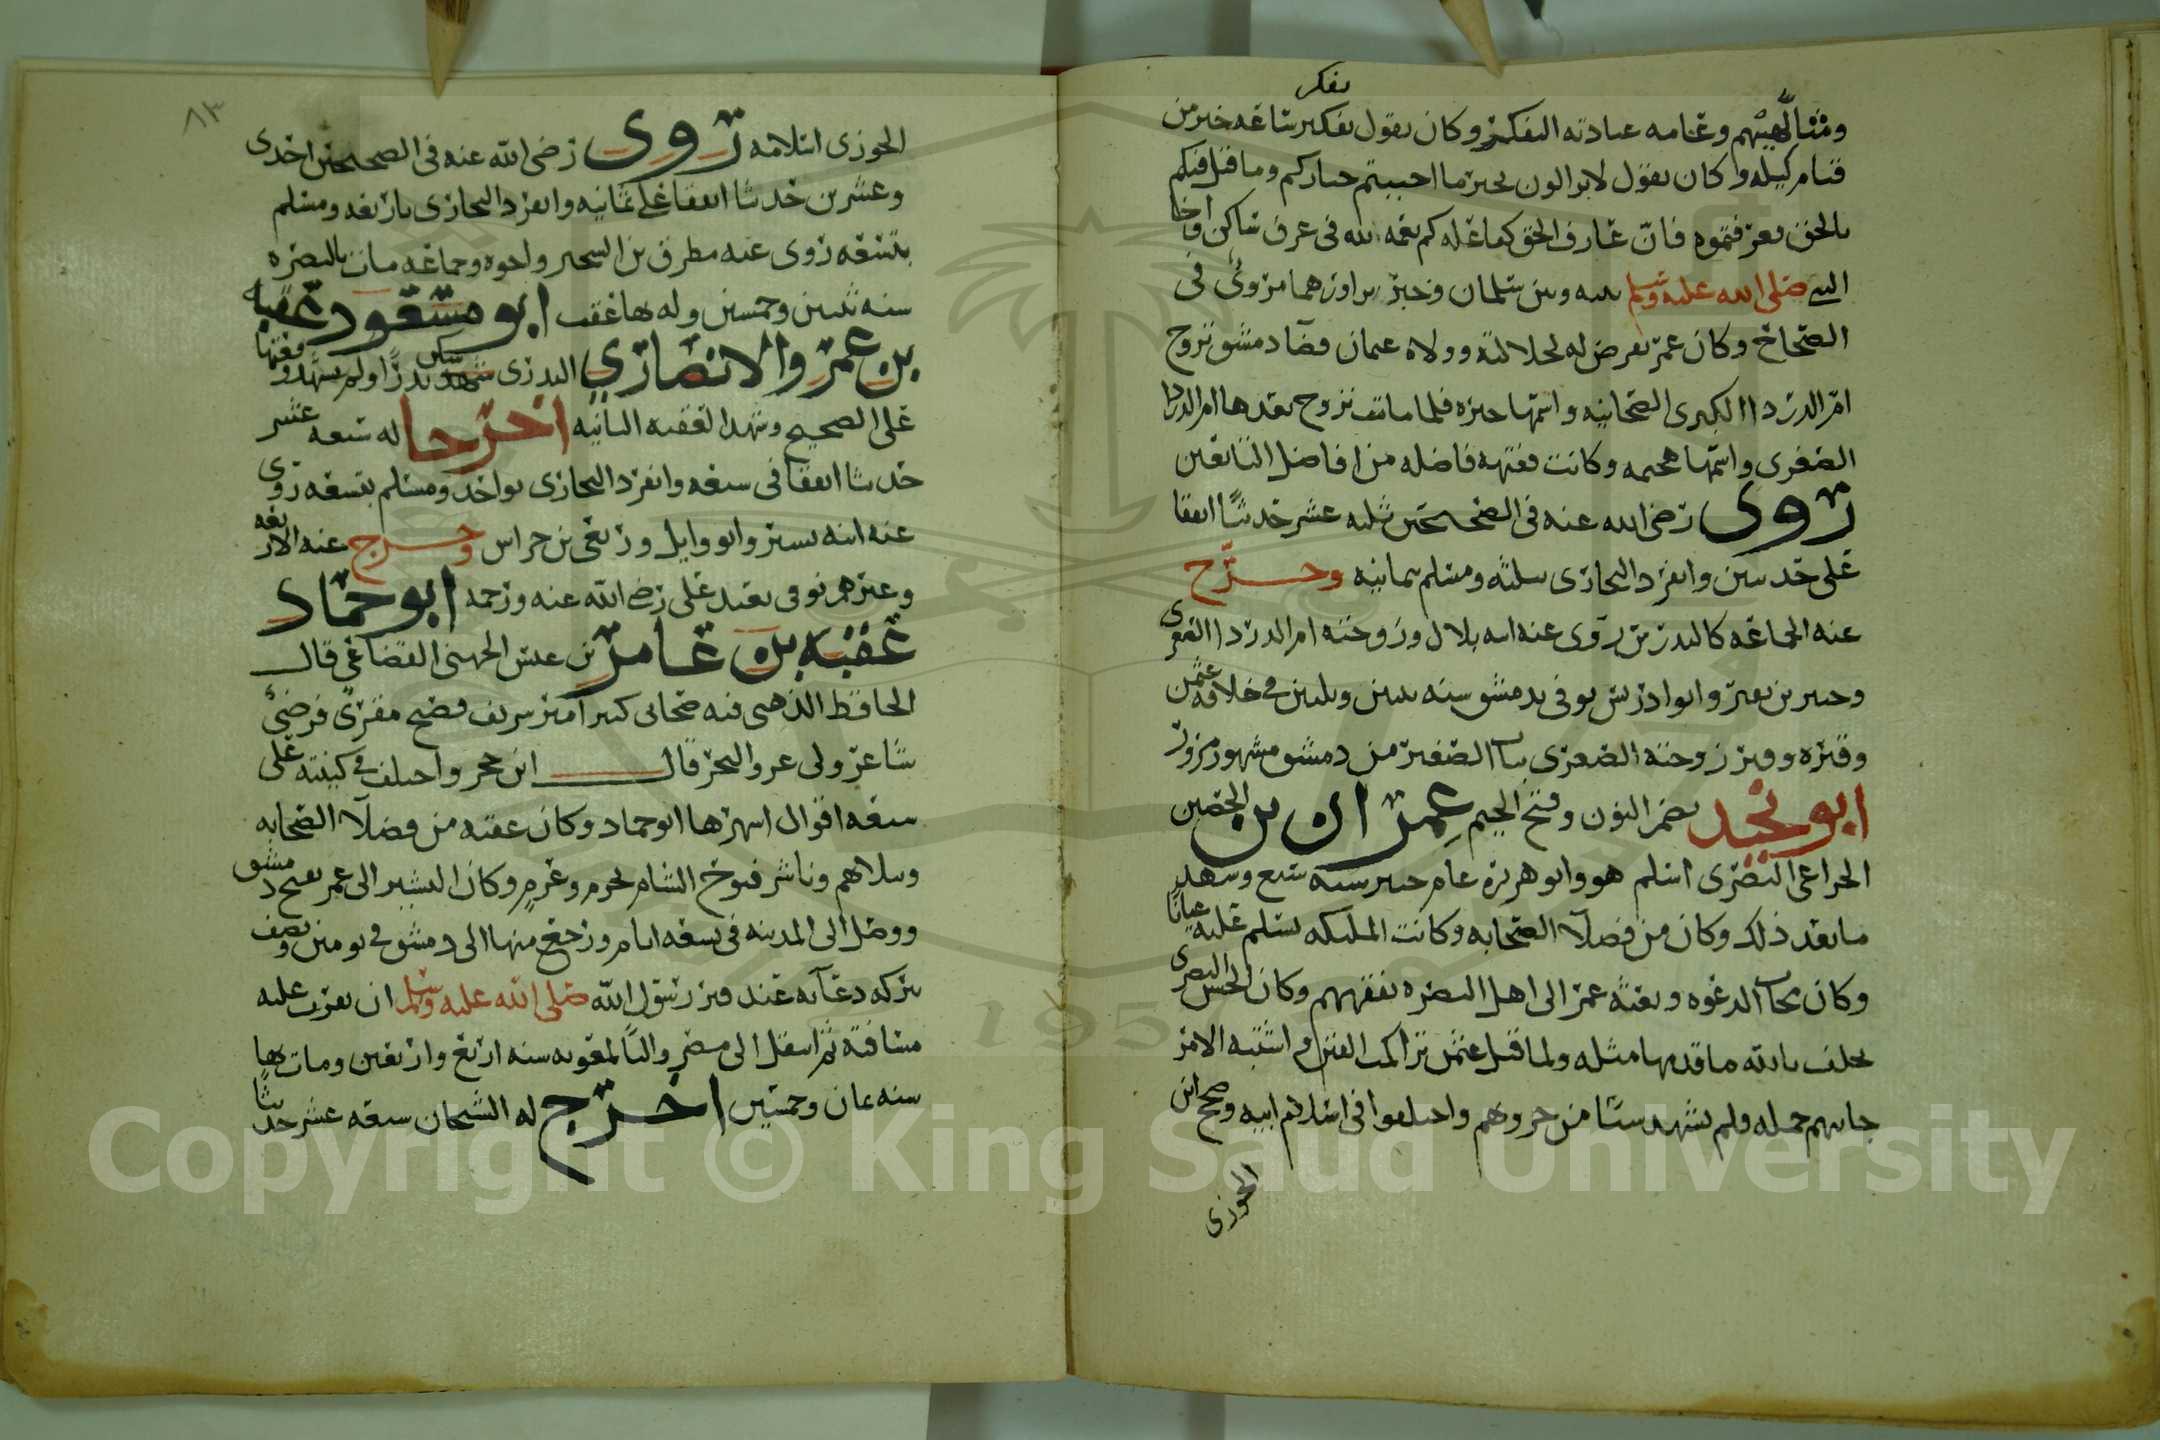 تفكر
ومثالهيهم وعامه عبادته التفكر وكان يقول تفكير ساعه خير من
قيام ليله وكان يقول لا يزالون بخير ما احببتم خياركم وما قيل فيكم
بالحق فعرفتموه فان عارف الحق كفاعله كم نعمه لله في عرق ساكن واخا
النبي صلى الله عليه وسلم بينه وبين سلمان وخبر تزاورهما مروي في
الصحاح وكان عمر يفرض له لجلالته وولاه عثمان قضآ دمشق تزوج
ام الدردا الكبرى الصحابيه واسمها خيره فلما ماتت تزوج بعدها ام الدردا
الصغرى واسمها هجيمه وكانت فقيهه فاضله من افاضل التابعين
روى رضي الله عنه في الصحيحين ثلثه عشر حديثا اتفقا
على حديثين وانفرد البخاري بثلثه ومسلم بثمانيه وخرج
عنه الجماعه كالبدرين روى عنه ابنه بلال وزوجته ام الدردا الصغرى
وجبير بن نفير وابو ادريس توفي بدمشق سنه ثنتين وثلثين في خلافه عثمن
وقبره وقبر زوجته الصغرى بباب الصغير من دمشق مشهور مزور
ابو نجيد بضم النون وفتح الجيم عمران بن الحصين
الخزاعي البصري اسلم هو وابو هريره عام خيبر سنه سبع وشهد
ما بعد ذلك وكان من فضلآ الصحابه وكانت الملئكه تسلم عليه عيانا
وكان مجاب الدعوه وبعثه عمر الى اهل البصره يفقههم وكان الحسن البصري
يحلف بالله ما قدمها مثله ولما قتل عثمن تراكمت الفتن واشتبه الامر
جانبهم جمله ولم يشهد شيئا من حروبهم واختلفوا في اسلام ابيه وصحح ابن
الجوزي
٨٣
الجوزي اسلامه روى رضي الله عنه في الصحيحين احدى
وعشرين حديثا اتفقا على ثمانيه وانفرد البخاري باربعه ومسلم
بتسعه روى عنه مطرف بن الشخير واخوه وجماعه مات بالبصره
سنه ثنتين وخمسين وله بها عقب ابو مسعود عقبه
بن عمرو الانصاري البدري سكن بدرا ولم يشهد وقعتها
على الصحيح وشهد العقبه الثانيه اخرجا له سبعه عشر
حديثا اتفقا في سبعه وانفرد البخاري بواحد ومسلم بتسعه روى
عنه ابنه بشير وابو وايل وربعي بن حراش وخرج عنه الاربعه
وغيرهم توفي بعد علي رضي الله عنه ورحمه ابو حماد
عقبه بن عامر بن عبس الجهني القضاعي قال
الحافظ الذهبي فيه صحابي كبير امير شريف فصيح مقرئ فرضي
شاعر ولي غزو البحر قال ابن حجر واختلف في كنيته على
سبعه اقوال اشهرها ابو حماد وكان عقبه من فضلآ الصحابه
ونبلائهم وباشر فتوح الشام بحزم وعزم وكان البشير الى عمر بفتح دمشق
ووصل الى المدينه في سبعه ايام ورجع منها الى دمشق في يومين ونصف
ببركه دعآئه عند قبر رسول الله صلى الله عليه وسلم ان يقرب عليه
مسافته ثم انتقل الى مصر واليا لمعويه سنه اربع واربعين ومات بها
سنه ثمان وخمسين اخرج له الشيخان سبعه عشر حديثا
Copyright © King Saud University
1957